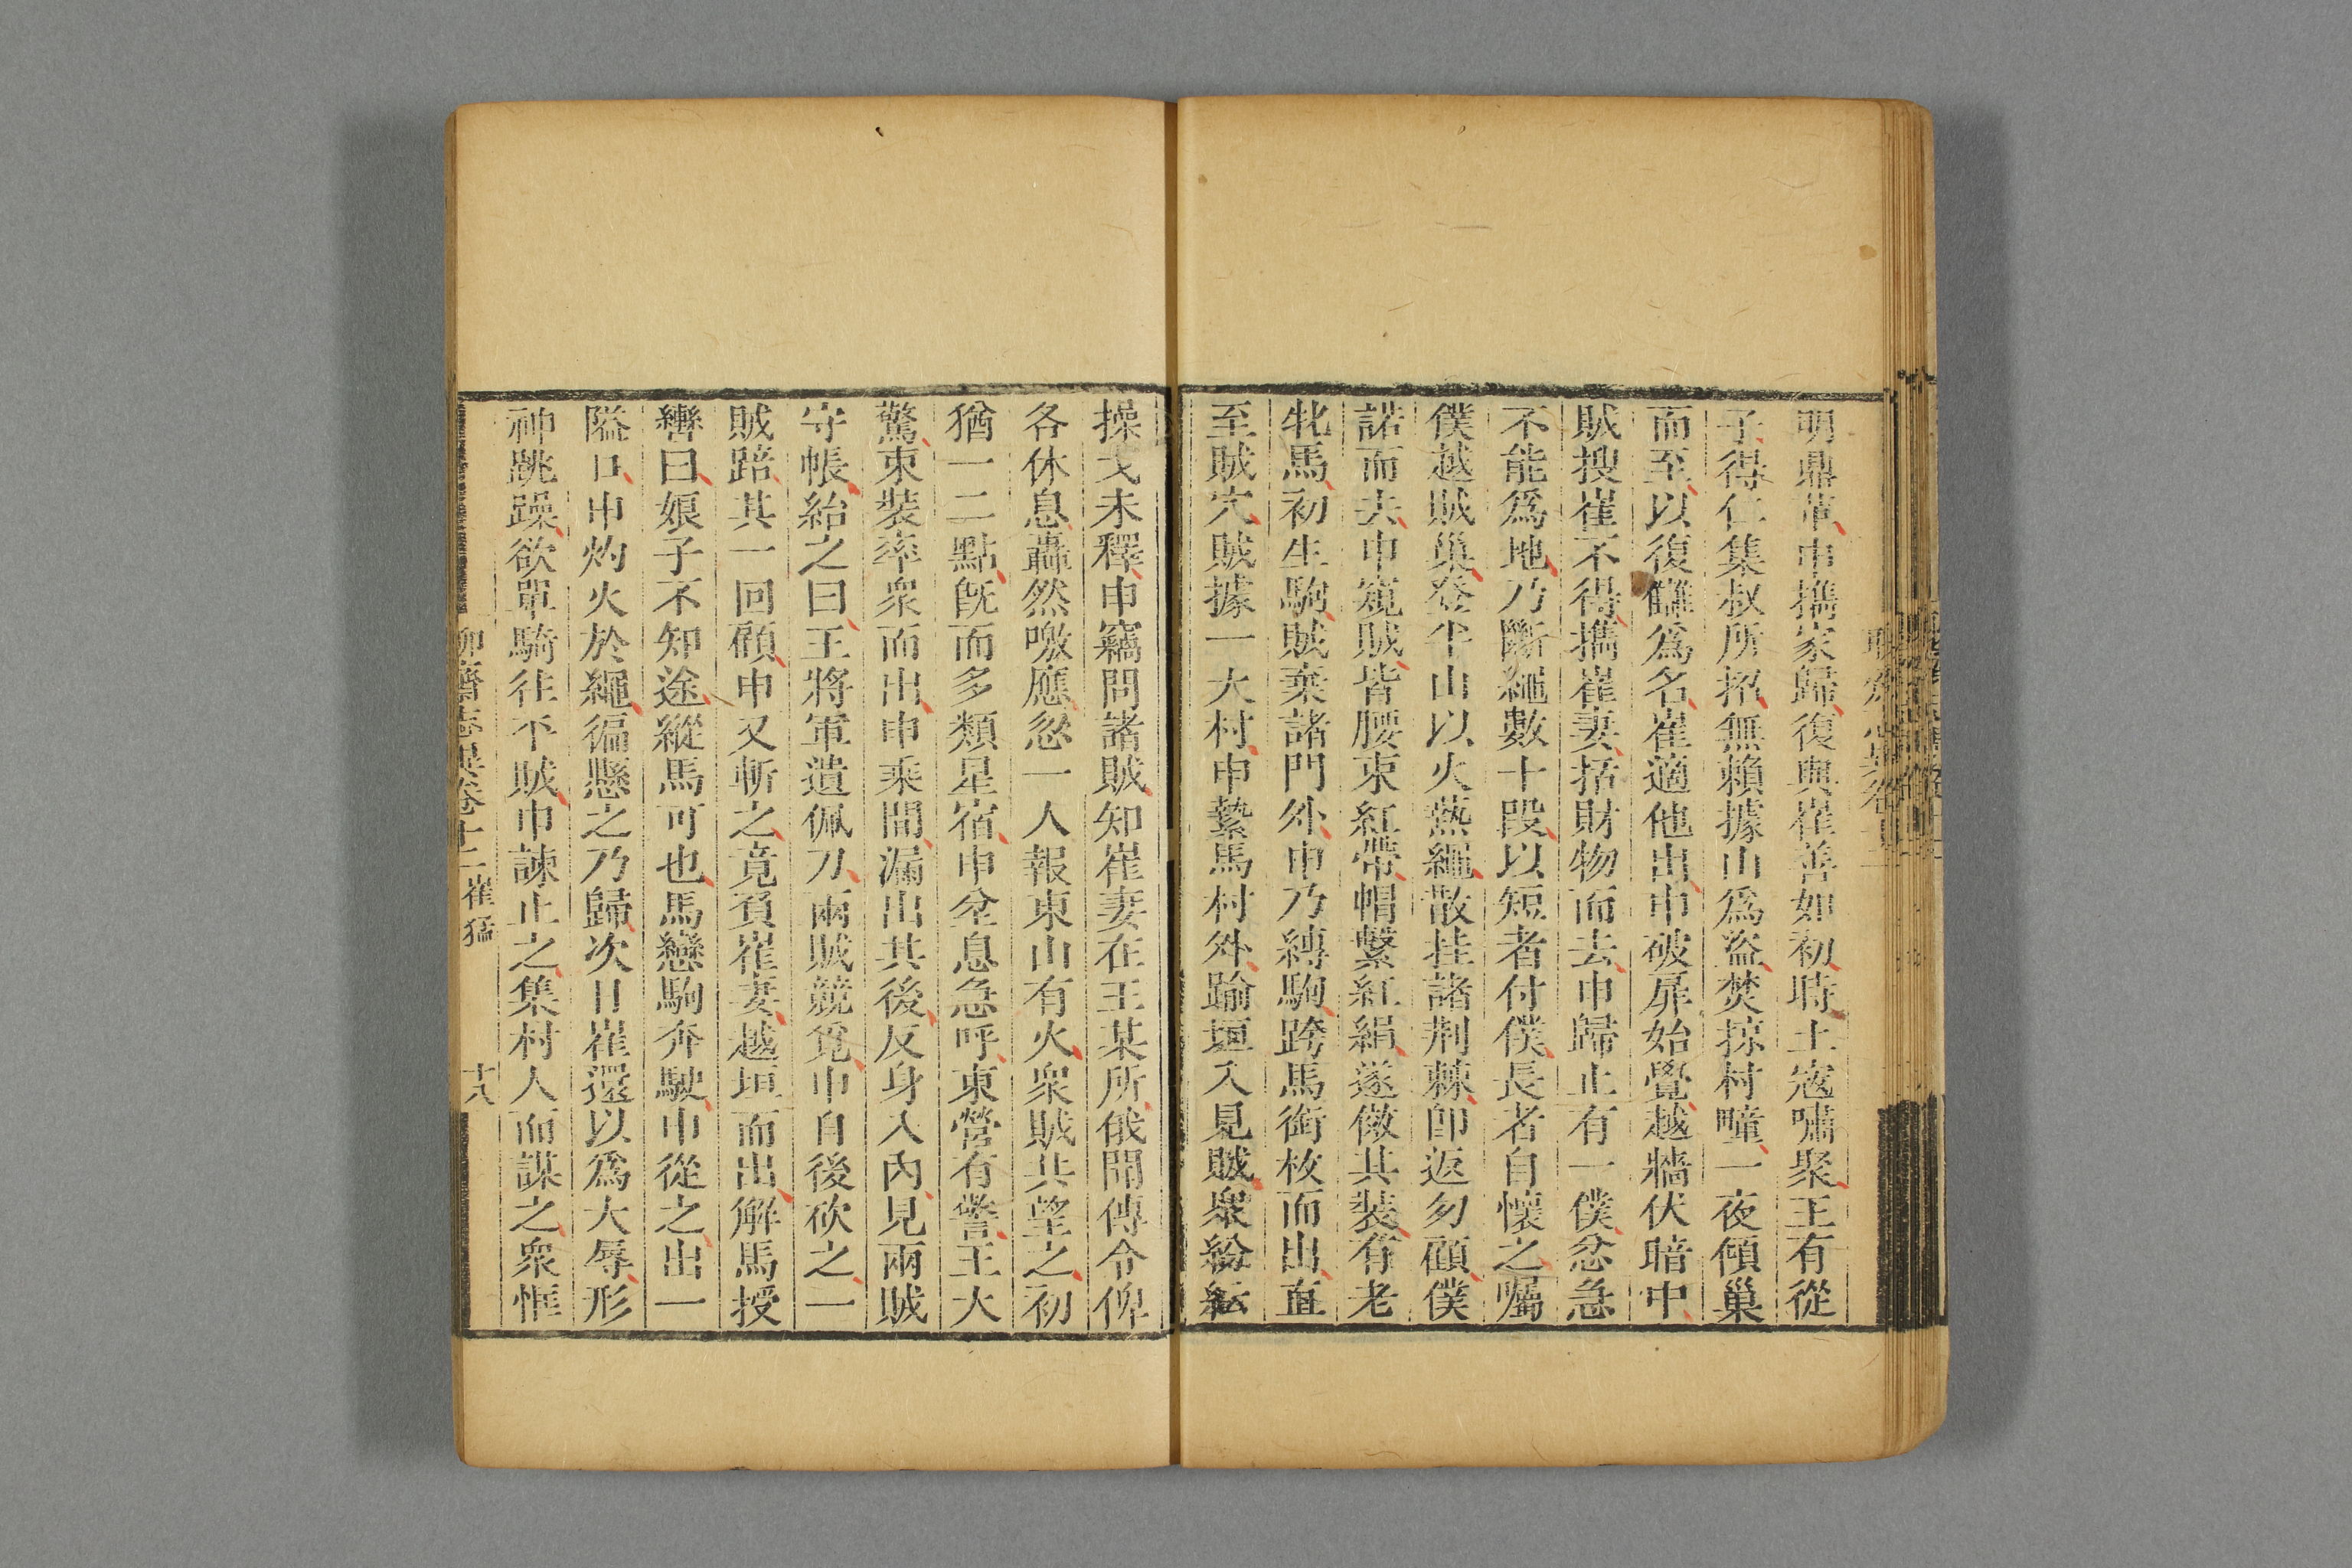 明鼎革申攜家歸復與崔善如初時土寇嘯聚王有從
子得仁集叔所招無賴據山爲盜焚掠村疃一夜傾巢
而至以復讎爲名崔適他出申破扉始覺越牆伏暗中
賊搜崔不得攜崔妻括財物而去申歸止有一僕忿急
不能爲地乃斷繩數十段以短者付僕長者自懷之囑
僕越賊巢登半山以火爇繩散挂諸荆棘卽返勿顧僕
諾而去申窺賊皆腰束紅帶帽繫紅絹遂傚其裝有老
牝馬初生駒賊棄諸門外申乃縛駒跨馬銜枚而出直
至賊穴賊據一大村申縶馬村外踰垣入見賊衆紛紜
操戈未釋申竊問諸賊知崔妻在王某所俄聞傳令俾
各休息轟然噭應忽一人報東山有火衆賊共望之初
猶一二點旣而多類星宿申坌息急呼東營有警王大
驚束裝率衆而出申乘間漏出其後反身入內見兩賊
守帳紿之曰王將軍遺佩刀兩賊競覓申自後砍之一
賊踣其一回顧申又斬之竟負崔妻越垣而出解馬授
轡曰娘子不知途縱馬可也馬戀駒奔駛申從之出一
隘口申灼火於繩徧懸之乃歸次日崔還以爲大辱形
神跳躁欲單騎往平賊申諫止之集村人而謀之衆恇
聊齋志異卷十二 崔猛 十八